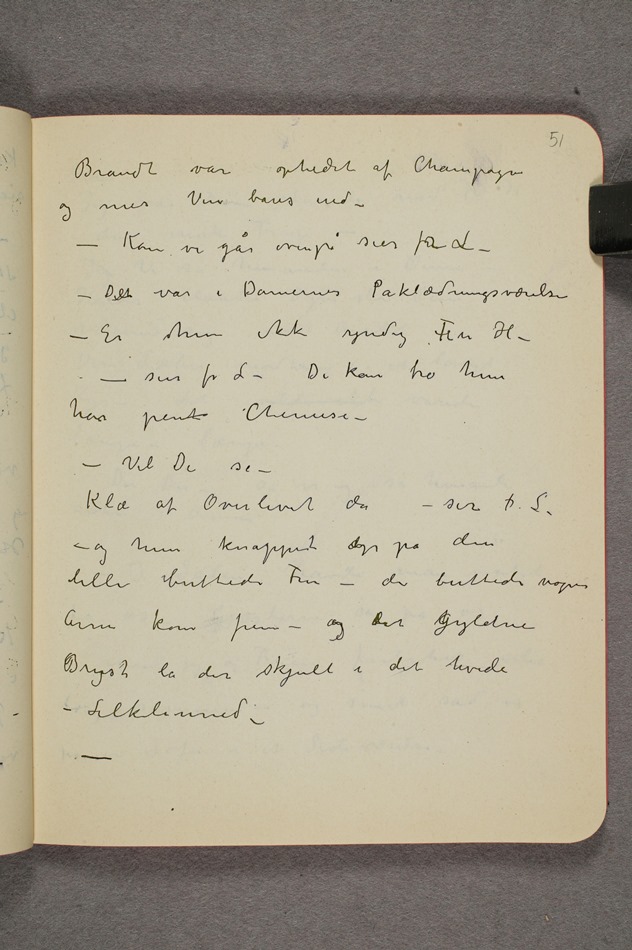 51
Brandt var ophedet af Champagne
og mer Vin bares ind –
– Kan vi gå ovenpå sier fru L –
– Det var i Damernes Paklædningsværelse
– Er hun ikke yndig Fru H –
– sier fr L – De kan tro hun
har pent Chemise –
– Vil De se –
Klæ af Overlivet da – sier F. L.
– og hun knapped op på den
lille buttede Fru – de buttede
Arme kom frem – og det gyldne
Bryst lå der skjult i det hvide
– Silkelinned –
—